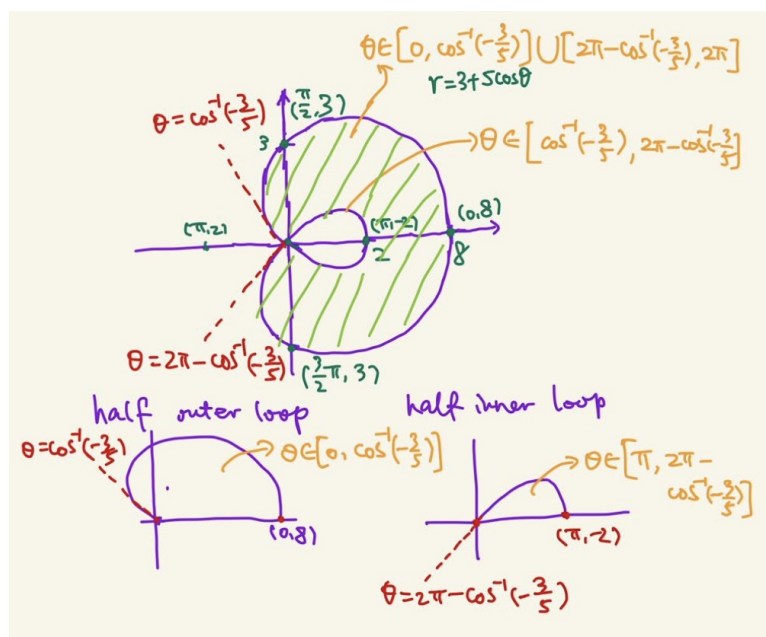 θ∈[0, cos⁻¹(-3/5)]∪[2π-cos⁻¹(-3/5), 2π]
r=3+5cosθ
θ=cos⁻¹(-3/5)
(π/2, 3)
3
θ∈[cos⁻¹(-3/5), 2π-cos⁻¹(-3/5]
(π, 2)
(π, -2)
(0, 8)
2
8
θ=2π-cos⁻¹(-3/5)
(3/2 π, 3)
half outer loop
θ=cos⁻¹(-3/5)
θ∈[0, cos⁻¹(-3/5)]
(0, 8)
half inner loop
θ∈[π, 2π-
cos⁻¹(-3/5)]
(π, -2)
θ=2π-cos⁻¹(-3/5)